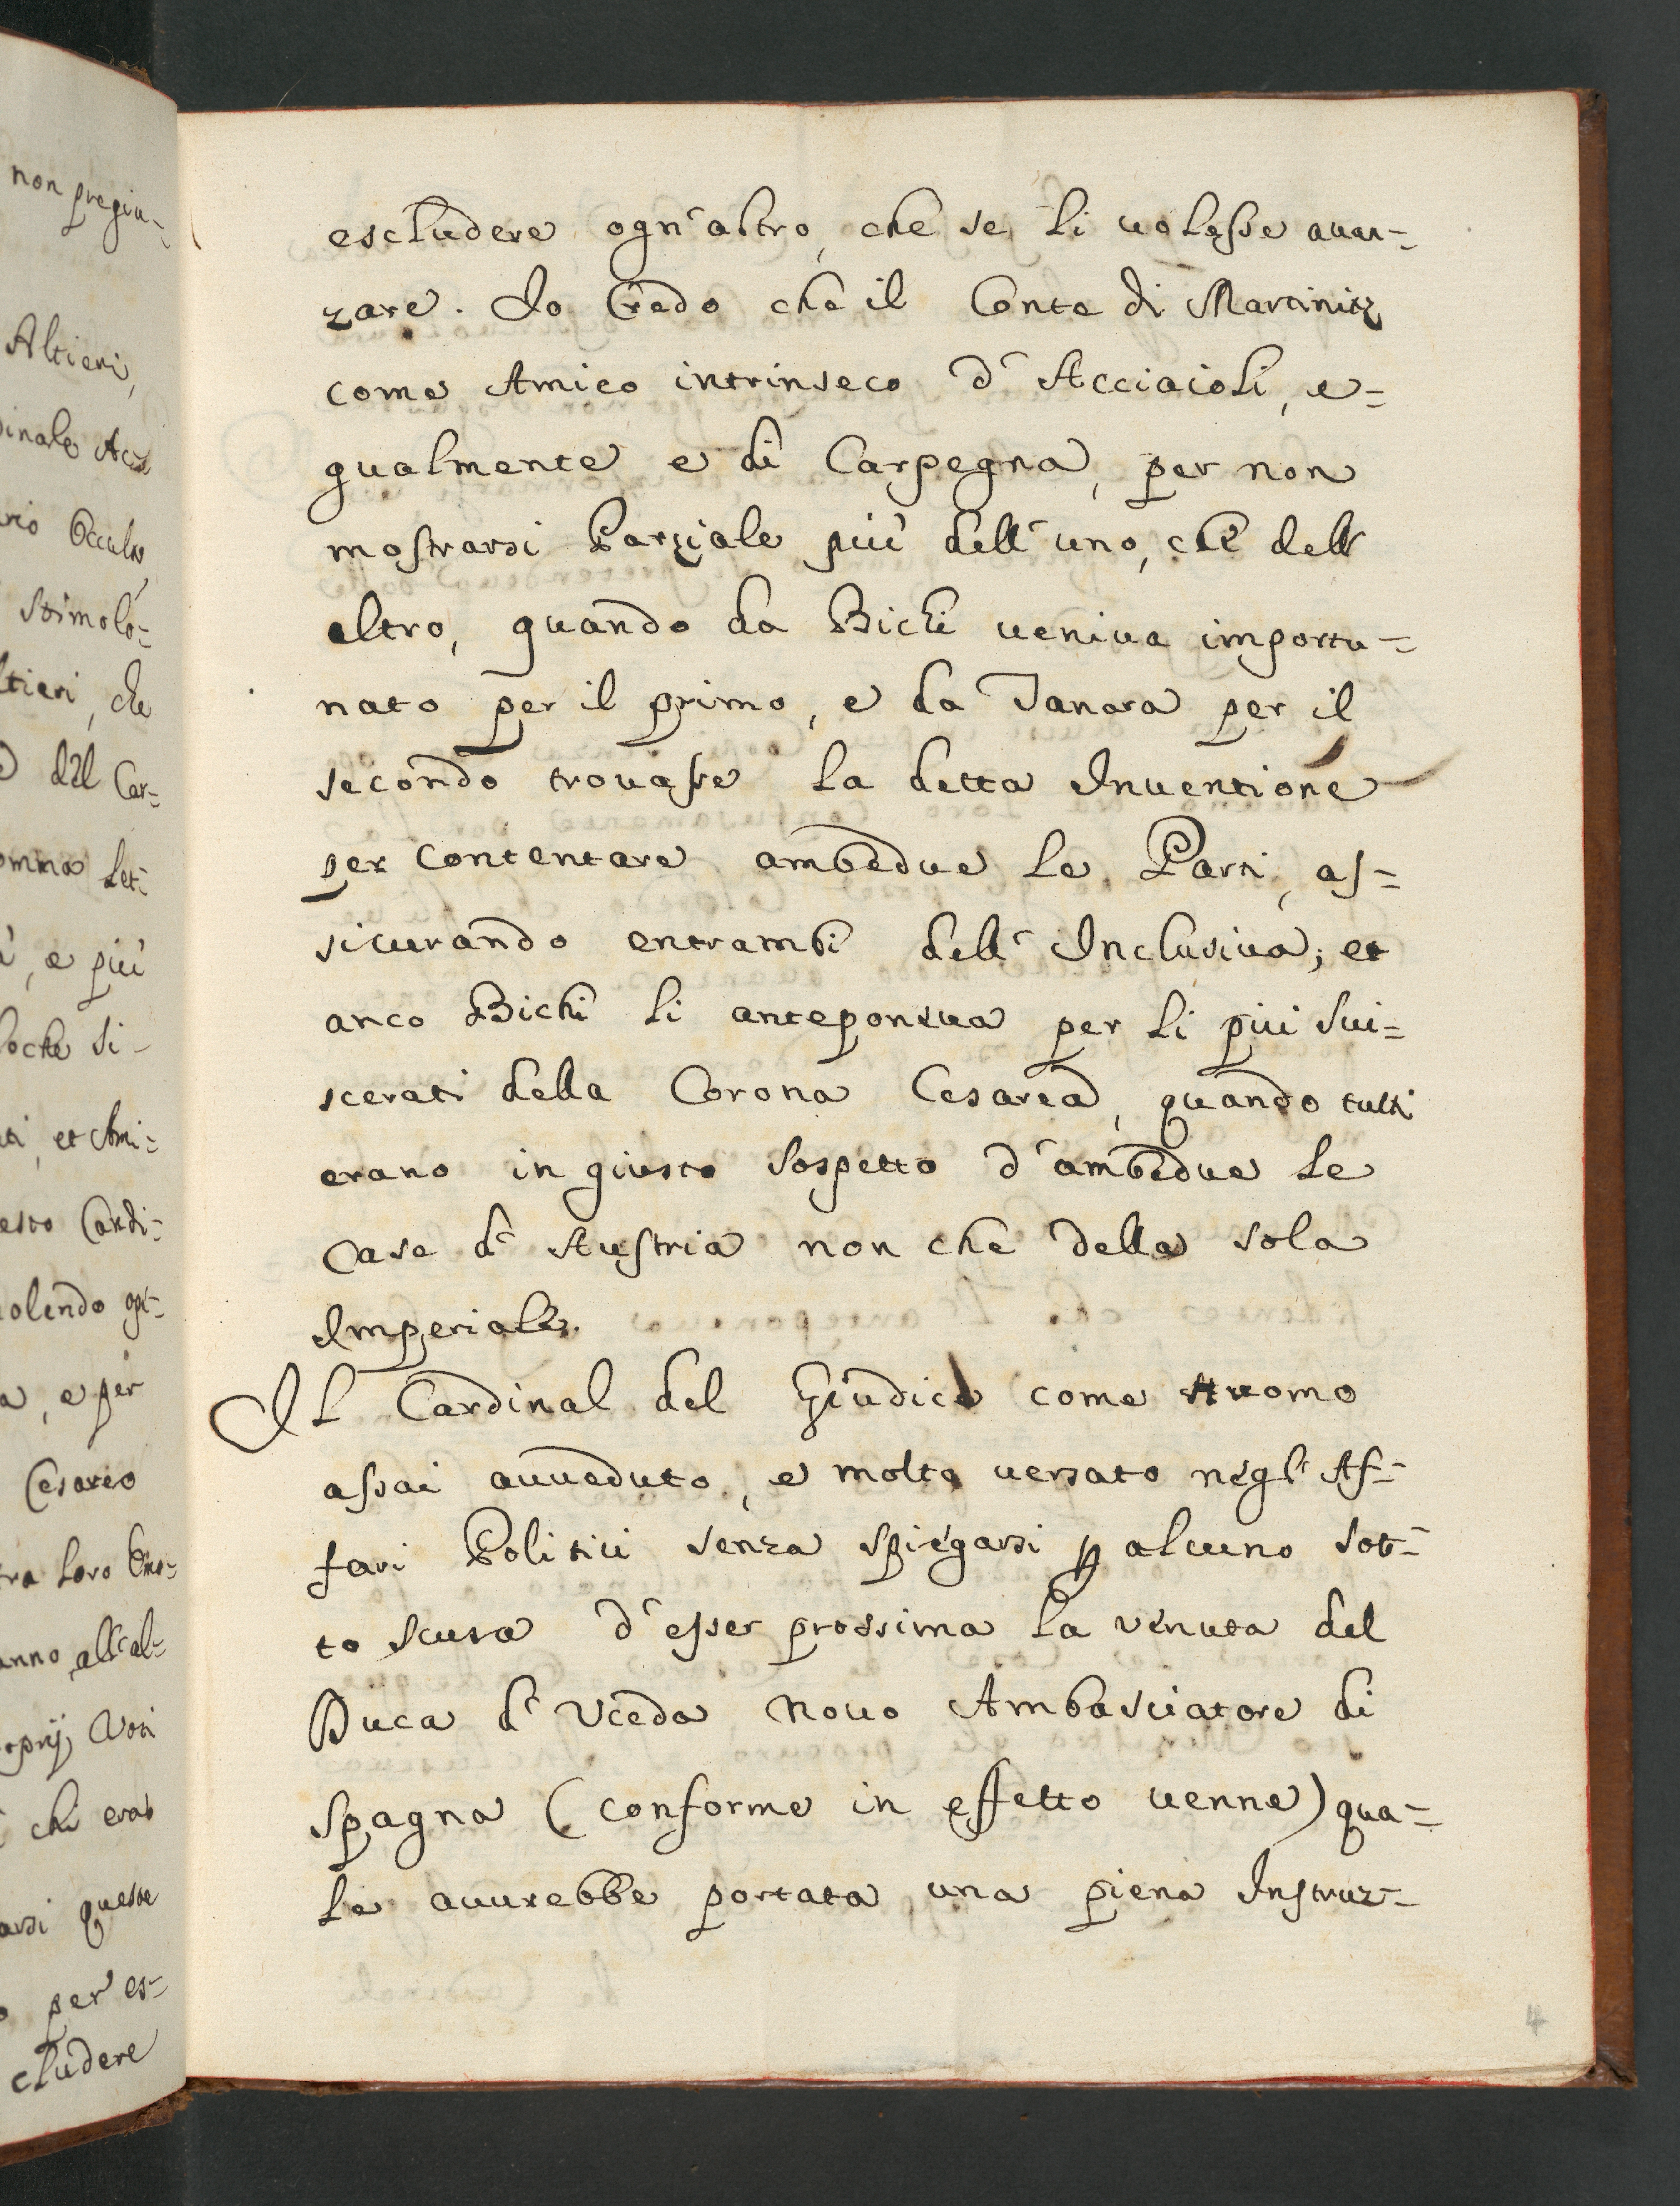 non pregiu-
Altieri,
dinale Acc
Occulto
stimolo-
ltieri, che
del Car-
omma let-
, e più
oche si-
ti, et Ami-
esto Candi-
uolendo
a, e per
Cesareo
tra loro
anno, all'al-
che erao
arsi queste
per es-
cludere
escludere ogn'altro, che se li uolesse auan-
zare. Io Credo che il Conte di Martinitz
come Amico intrinseco d'Acciaioli, e-
gualmente e di Carpegna, per non
mostrarsi Parziale più dell'uno, che dell
altro, quando da Bichi ueniua importu-
nato per il primo, e da Tanara per il
secondo trouasse la detta Inuentione
per Contentare ambedue le Parti, as-
sicurando entrambi dell'Inclusiua; et
anco Bichi li anteponeua per li più sui-
scerati della Corona Cesarea, quando tutti
erano in giusto sospetto d'ambedue le
Case d'Austria non che della sola
Imperiale.
Il Cardinal del Giudice come Huomo
assai auueduto, e molto uersato negl'Af-
fari Politici senza spiegarsi p alcuno sot-
to scusa d'esser prossima la venuta del
Duca d'Vceda nouo Ambasciatore di
Spagna (conforme in effetto uenne) qua-
le auurebbe portata una piena Instruz-
4